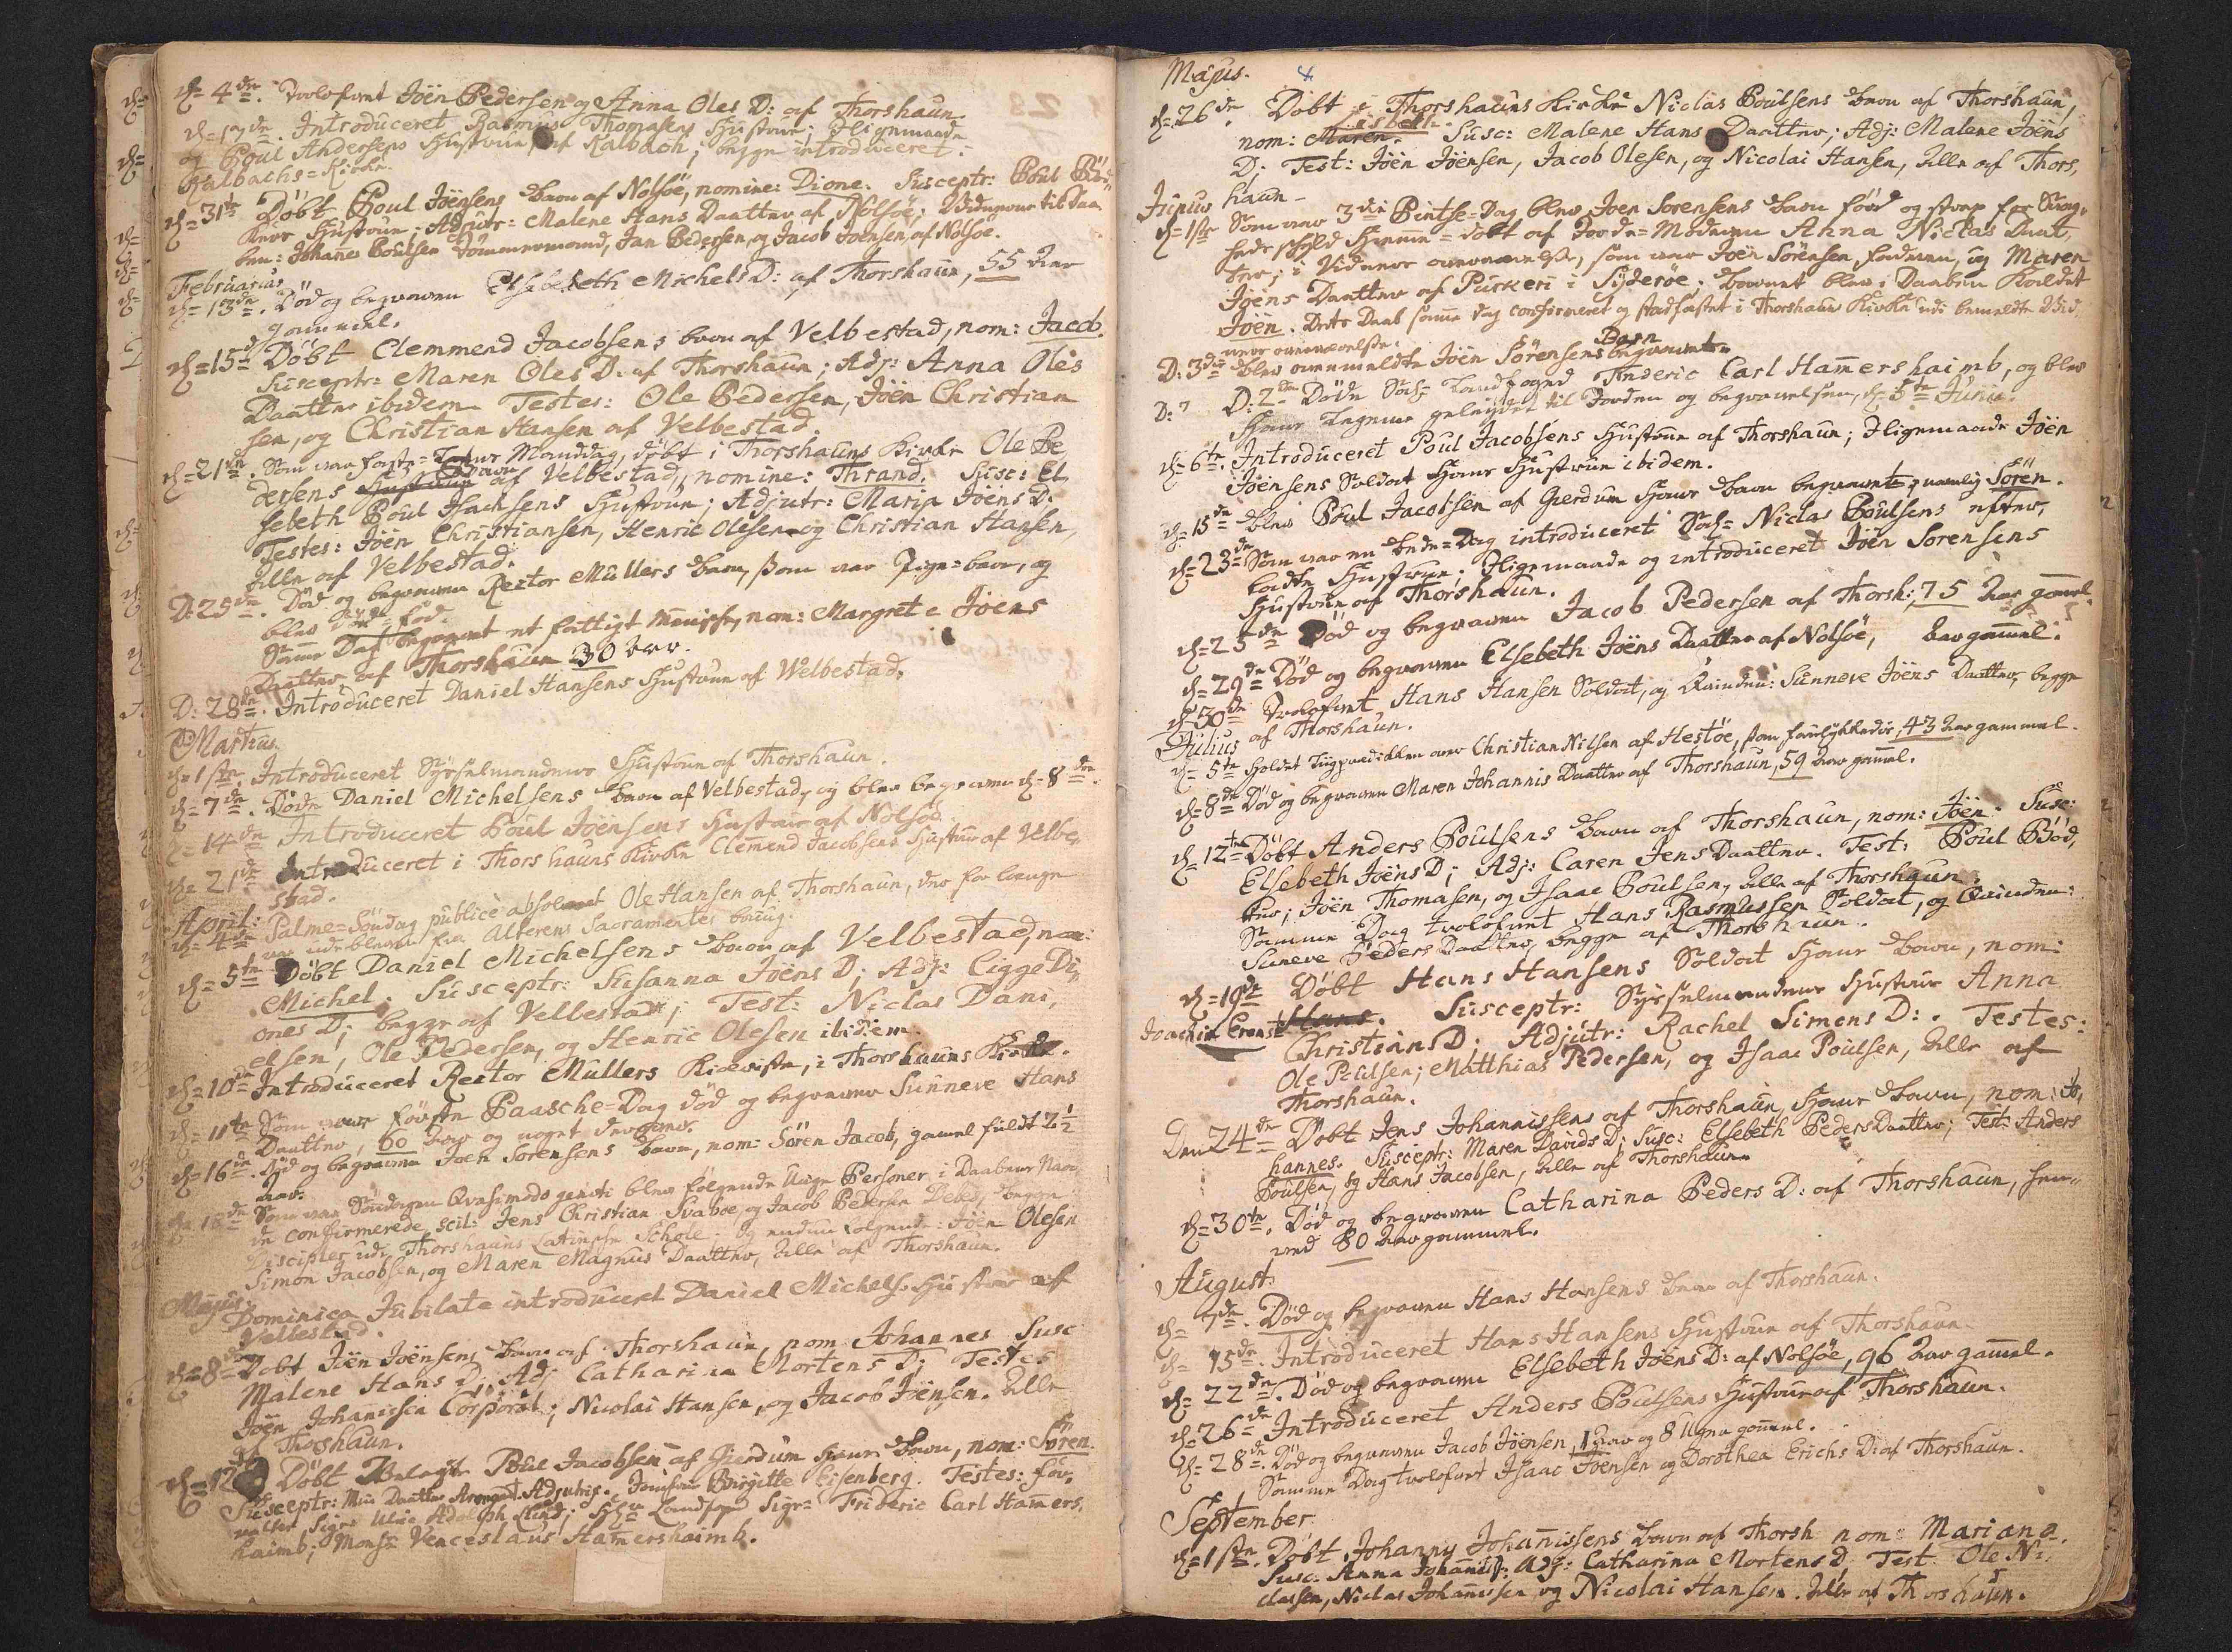 d= 4de. Trolofvet Jöen Pedersen og Anna Oles D: af Thorshaun.
d= 17de. Introduceret Rasmus Thomasens Hustrue; Ligemaade
og Poul Andersens Hustrue af Kalbach; begge introduceret i
Kalbachs=Kirke.
d= 31te Döbt Poul Jöensens barn af Nolsöe, nomine: Dione. Susceptr: Poul
Hustrue; Adjutr= Malene Hans Daatter af Nolsöe; Vidnerne til Daa
ben: Johanes Poulsen Tömmermand, Jan Pedersen, og Jacob Joensen, af Nolsöe.
Februarius
d= 13de. Död og begraven Elsebeth Michels D: af Thorshaun, 55 Aar
gammel.
d= 15de Döbt Clemmend Jacobsens barn af Velbestad, nom: Jacob.
Susceptr= Maren Oles D. af Thorshaun; Adj: Anna Oles
Daatter ibidem. Testes: Ole Pedersen, Jöen Christian
sen, og Christian Hansen af Velbestad.
d= 21de. Som var faste= Mandag, döbt i Thorshauns Kirke Ole Pe
dersens Barn af Velbestad, nomine: Thrand. Susc: El
sebeth Poul Isachsens Hustrue; Adjutr: Maria Joens D:
Testes: Jöen Christiansen, Henric Olesen og Christian Hansen,
Alle af Velbestad.
D: 25de. Död og begraven Rector Müllers barn, som var Pige=barn, og
blev död=föd.
Samme Dag begravet et fattigt Menniske, nom: Margrete Joens
Daatter af Thorshaun 30 Aar.
D: 28de. Introduceret Daniel Hansens Hustrue af Welbestad.
Martius
d= 1ste. Introduceret Sysselmandens Hustrue af Thorshaun.
d= 7de. Döde Daniel Michelsens barn af Velbestad, og blev begraven d= 8de.
d= 14de Introduceret Poul Jöensens Hustrue af Nolsöe.
d= 21de Introduceret i Thorshauns Kirke Clemend Jacobsens Hustrue af Velbe,
stad.
April:
d= 4de Palme=Söndag publicè absolveret Ole Hansen af Thorshaun, der for længe
var udebleven fra Alterens Sacramentes brug.
d= 5te Döbt Daniel Michelsens barn af Velbestad, nom:
Michel. Susceptr: Susanna Joëns D; Adj: Ligge Di,
ones D; begge af Velbestad; Test: Niclas Dani,
elsen, Ole Pedersen, og Henric Olesen ibidem.
d= 10de Introduceret Rector Müllers Kiereste, i Thorshauns Kirke.
d= 11te Som var förste Paasche=Dag död og begraven Sunneve Hans
Daatter, 60 Aar og noget derover.
d= 16de. Död og begraven Joen Sorensens barn, nom: Sören Jacob, gamel fuldt 2½
Aar.
d= 18de Som var Söndagen Qvasimodo geniti blev fölgende Unge Personer i Daabens Naa,
de confirmerede, scil: Jens Christian Svaboe, og Jacob Pedersen Debes, begge
Discipler udi Thorshauns Latinske Schole. Og endnu fölgende: Jöen Olesen
Simon Jacobsen, og Maren Magnus Daatter, Alle af Thorshaun.
Majus.
Dominica Jubilate introduceret Daniel Michels: Hustrue af
Velbestad.
d= 8de Döbt Jöen Joënsens barn af Thorshaun, nom Johannes Susc
Malene Hans D. Adj Catharina Mortens D; Testes
Jöen Johannissen Corporal; Nicolai Hansen, og Jacob Jöensen. Alle
af Thorshaun.
d= 12 Döbt Poul Jacobsen af Gierdum hans barn, nom: Sören.
Susceptr: Min Daatter Adjutrix. Jomfrue Birgitte Eisenberg. Testes: for,
valter Sigr Ulric Adolph Lund; Landfoged Sigr= Frideric Carl Hamers,
haimb; Mons= Venceslaus Hamershaimb.
Majus.
d= 26de Döbt i Thorshauns Kirke Niclas Poulsens barn af Thorshaun,
nom: Maren. Susc: Malene Hans Daatter; Adj: Malene Joëns
D; Test: Jöen Jöensen, Jacob Olesen, og Nicolai Hansen, Alle af Thors,
haun -
Junius
d= 1ste Som var 3die Pintse=Dag blev Joen Sorensens barn föed og strax for Svag,
heds skyld hjemme=döbt af Jorde=Moderen Anna Niclas Daat,
ter; i Vidners overværelse, som var Joën Sörensen, faderen, og Maren
Joens Daatter af Pürkeri i Syderöe; barnet blev i Daaben kaldet
Joën. Dets Daab samme dag confirmeret og stadfæstet i Thorshauns Kirke udi bemeldte Vid
ners overværelse.
D: 3die blev ovenmeldte Joën Sörensens Barn begravet.
D: 7 D: 2den Döde Landfoged Frideric Carl Hamershaimb, og blev
Hans Legeme geleydet til Jorden og begravelsen, d= 5te Junii.
d= 6te. Introduceret Poul Jacobsens Hustrue af Thorshaun; Ligemaade Jöen
Jöensens Soldat Hans Hustrue ibidem.
d= 15de blev Poul Jacobsen af Gierdum Hans barn begravet, navnlig Sören.
d= 23de Som var en bede=Dag introduceret Niclas Poulsens efter,
ladte Hustrue. Ligemaade og introduceret Joën Sorensens
Hustrue af Thorshaun.
d= 25de Död og begraven Jacob Pedersen af Thorsh: 75 Aar gamel.
d= 29de Död og begraven Elsebeth Jöens Daatter af Nolsöe, Aar gamel.
d= 30de Trolofvet Hans Hansen Soldat, og Qvinden: Sunneve Jöens Daatter, begge
af Thorshaun.
Julius
d= 5te Holdet Liigprædicken over Christian Nilsen af Hestöe, som forulykkedes, 43 Aar gammel.
d= 8de Död og begraven Maren Johannis Daatter af Thorshaun, 59 Aar gamel.
d= 12te Döbt Anders Poulsens barn af Thorshaun, nom: Jöen. Susc:
Elsebeth Joëns D; Adj: Caren Jens Daatter. Test: Poul Böd,
ker; Jöen Thomasen, og Isaac Poulsen, Alle af Thorshaun.
Samme Dag trolofvet Hans Rasmussen Soldat, og Qvinden:
Suneve Peders Daatter, begge af Thorshaun.
d= 19de Döbt Hans Hansens Soldat Hans barn, nom:
Joachim Ernst Hans. Susceptr: Sysselmandens Hustrue Anna
Christians D. Adjutr: Rachel Simens D:. Testes:
Ole Poulsen; Matthias Pedersen, og Isaac Poulsen, Alle af
Thorshaun.
Den 24de Döbt Jens Johannissens af Thorshaun, Hans barn, nom: Jo,
hannes. Susceptr: Maren Davids D; Susc: Elsebeth Peders Daatter; Test: Anders
Poulsen, og Hans Jacobsen, Alle af Thorshaun
d= 30te. Död og begraven Catharina Peders D: af Thorshaun, hen,
ved 80 Aar gammel.
August:
d= 7de. Död og begraven Hans Hansens barn af Thorshaun.
d= 15de. Introduceret Hans Hansens Hustrue af Thorshaun.
d= 22de. Död og begraven Elsebeth Jöens D: af Nolsöe, 96 Aar gamel.
d= 26de Introduceret Anders Poulsens Hustrue af Thorshaun.
d= 28de. Död og begraven Jacob Jöensen, 1 Aar og 8 Uger gamel.
Samme Dag trolofvet Isaac Joensen og Dorothea Erichs D: af Thorshaun.
September
d= 1ste. Döbt Johannes Johannissens barn af Thorsh nom: Mariana.
Susc: Anna Johannis: Adj: Catharina Mortens D. Test Ole Ni,
classen, Niclas Johannissen og Nicolai Hansen. Alle af Thorshaun.